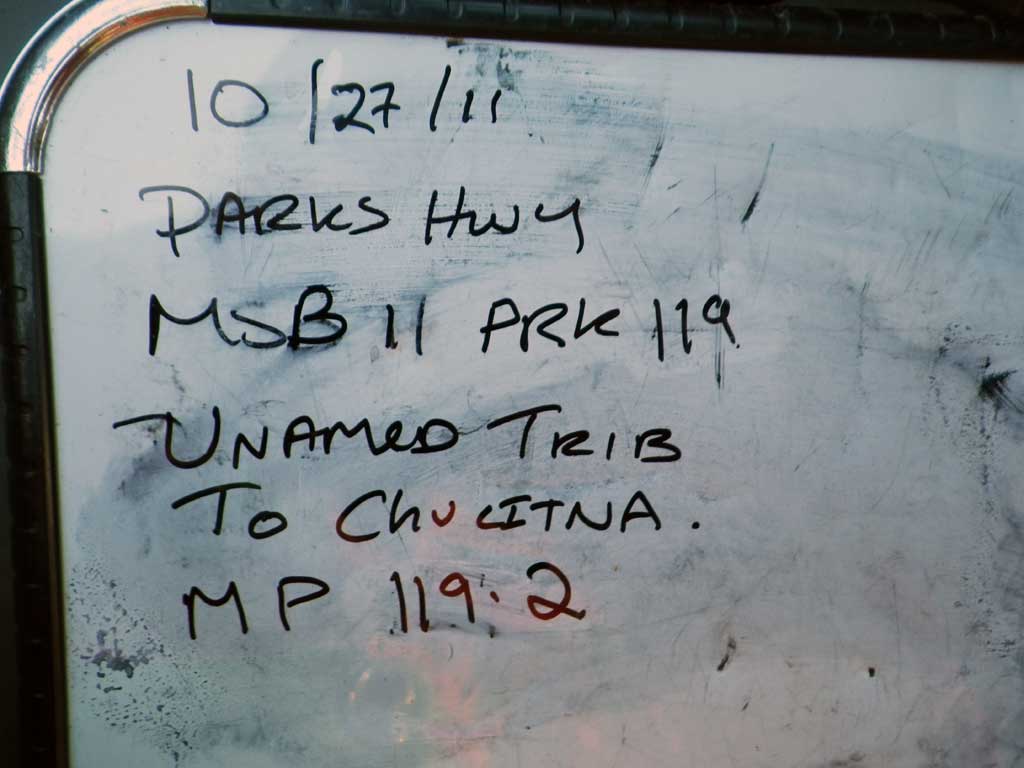 10/27/11
PARKS HWY
MSB 11 PRK 119
UNAMED TRIB
TO CHULITNA.
MP 119.2